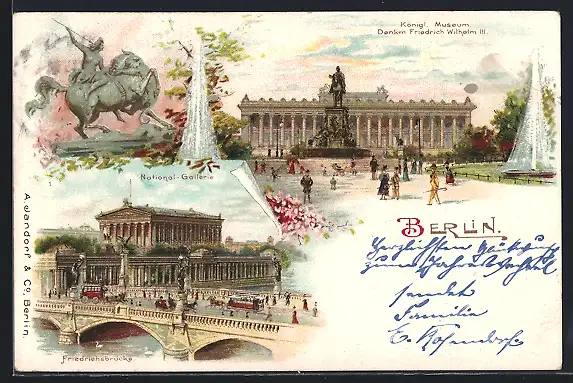 Königl. Museum.
Denkm. Friedrich Wilhelm III.
National-Gallerie
BERLIN.
Herzlichsten Glückwunsch
zum Jahreswechsel
sendet
Familie
E. Rosendorf.
Friedrichsbrücke
A. Jandorf & Co, Berlin